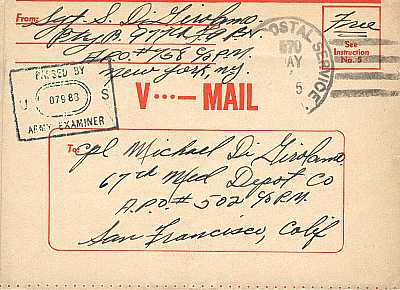 From: Sgt. S. Di Girolamo.
A.P.O. #758 c/o P.M.
New York, N.Y.
POSTAL SERVICE
Free
See
Instruction
No. 5
PASSED BY
U 07983 S
ARMY EXAMINER
V···—MAIL
To: Cpl Michael Di Girolamo.
67th Med Depot Co
A.P.O. # 502 c/o P.M.
San Francisco, Calif